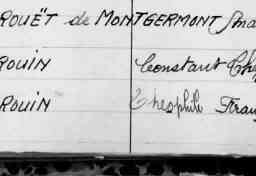 ROUËT de MONTGERMONT Ama
ROUIN Constant Thé
ROUIN Théophile Fran